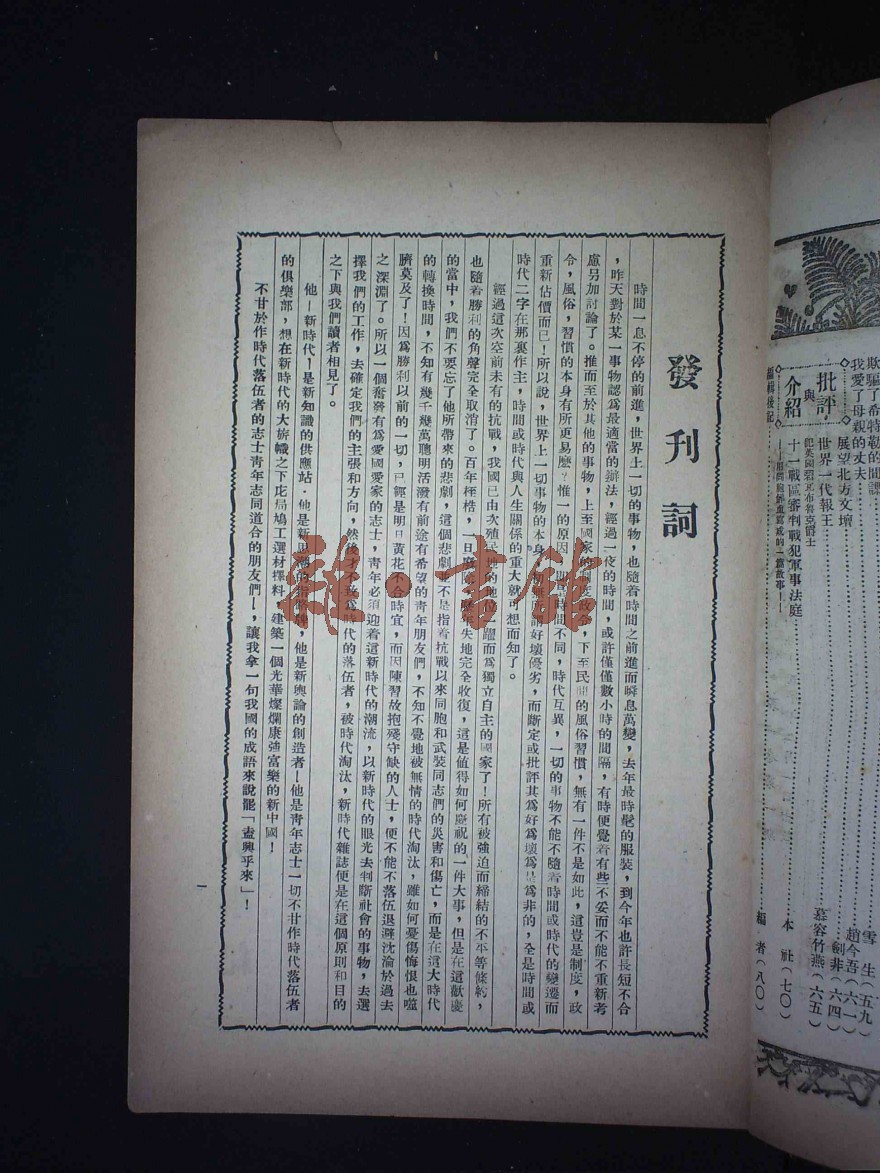 發刊詞
時間一息不停的前進，世界上一切的事物，也隨着時間之前進而瞬息萬變，去年最時髦的服裝，到今年也許長短不合
，昨天對於某一事物認爲最適當的辦法，經過一夜的時間，或許僅僅數小時的間隔，有時便覺着有些不妥而不能不重新考
慮另加討論了。推而至於其他的事物，上至國家的制度政令，下至民間的風俗習慣，無有一件不是如此，這豈是制度，政
令，風俗，習慣的本身有所更易麽？惟一的原因，時間不同，時代互異，一切的事物不能不隨着時間或時代的變遷而
重新估價而已！所以說，世界上一切事物的本身，無所謂好壞優劣，而斷定或批評其爲好爲壞爲是爲非的，全是時間或
時代二字在那裏作主，時間或時代與人生關係的重大就可想而知了。
經過這次空前未有的抗戰，我國已由次殖民地的地位一躍而爲獨立自主的國家了！所有被強迫而締結的不平等條約，
也隨着勝利的角聲完全取消了。百年桎梏，一旦，失地完全收復，這是值得如何慶祝的一件大事，但是在這歡慶
的當中，我們不要忘了他所帶來的悲劇，這個悲劇並不是指着抗戰以來同胞和武裝同志們的災害和傷亡，而是在這大時代
的轉換時間，不知有幾千幾萬聰明活潑有前途有希望的青年朋友們，不知不覺地被無情的時代淘汰，雖如何憂傷悔恨也噬
臍莫及了！因爲勝利以前的一切，已經是明日黃花不合時宜，而因陳習故抱殘守缺的人士，便不能不落伍退避沈淪於過去
之深淵了。所以一個奮發有爲愛國愛家的志士，青年必須迎着這新時代的潮流，以新時代的眼光去判斷社會的事物，去選
擇我們的工作，去確定我們的主張和方向，然後才不致爲時代的落伍者，被時代淘汰，新時代雜誌便是在這個原則和目的
之下與我們讀者相見了。
他—新時代！是新知識的供應站．他是新思潮的指路碑，他是新輿論的創造者—他是青年志士一切不甘作時代落伍者
的俱樂部，想在新時代的大旂幟之下庀局鳩工選材擇料，建築一個光華燦爛康強富樂的新中國！
不甘於作時代落伍者的志士青年志同道合的朋友們—，讓我拿一句我國的成語來說罷「盍興乎來」！
一
欺騙了希特勒的間諜 雪生（五九）
我愛了母親的丈夫 趙今吾（六一）
展望北方文壇 劍非（六四）
批評與介紹
世界一代報王 慕容竹燕（六五）
十一戰區審判戰犯軍事法庭 本社（七〇）
編輯後記 編者（八〇）